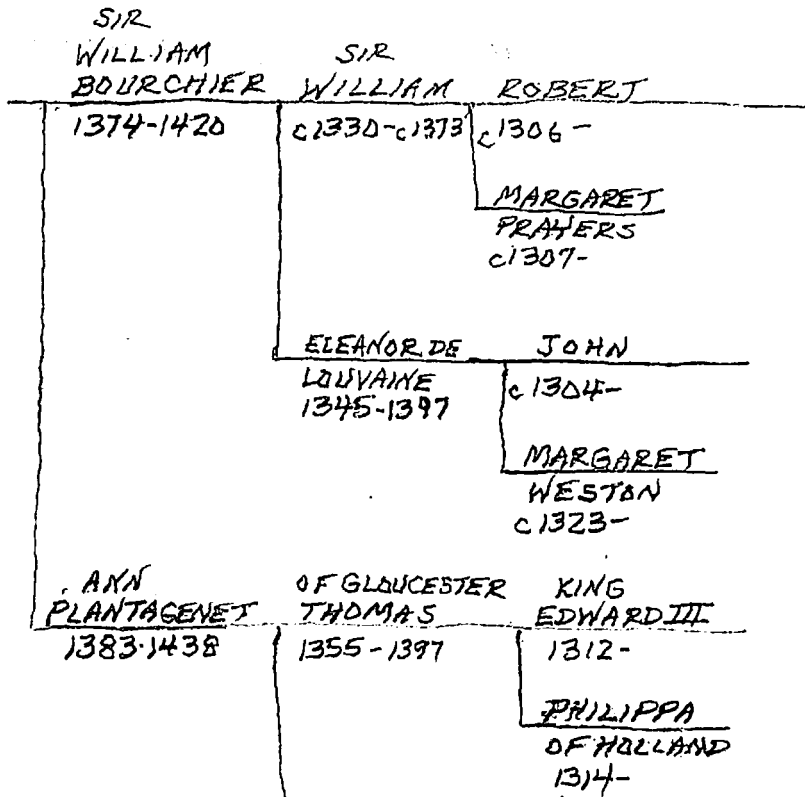 SIR
WILLIAM
BOURCHIER
1374-1420
SIR
WILLIAM
c1330-c1373
ROBERT
c1306-
MARGARET
PRAYERS
c1307-
ELEANOR DE
LOUVAINE
1345-1397
JOHN
c1304-
MARGARET
WESTON
c1323-
ANN
PLANTAGENET
1383-1438
OF GLOUCESTER
THOMAS
1355-1397
KING
EDWARD III
1312-
PHILIPPA
OF HOLLAND
1314-